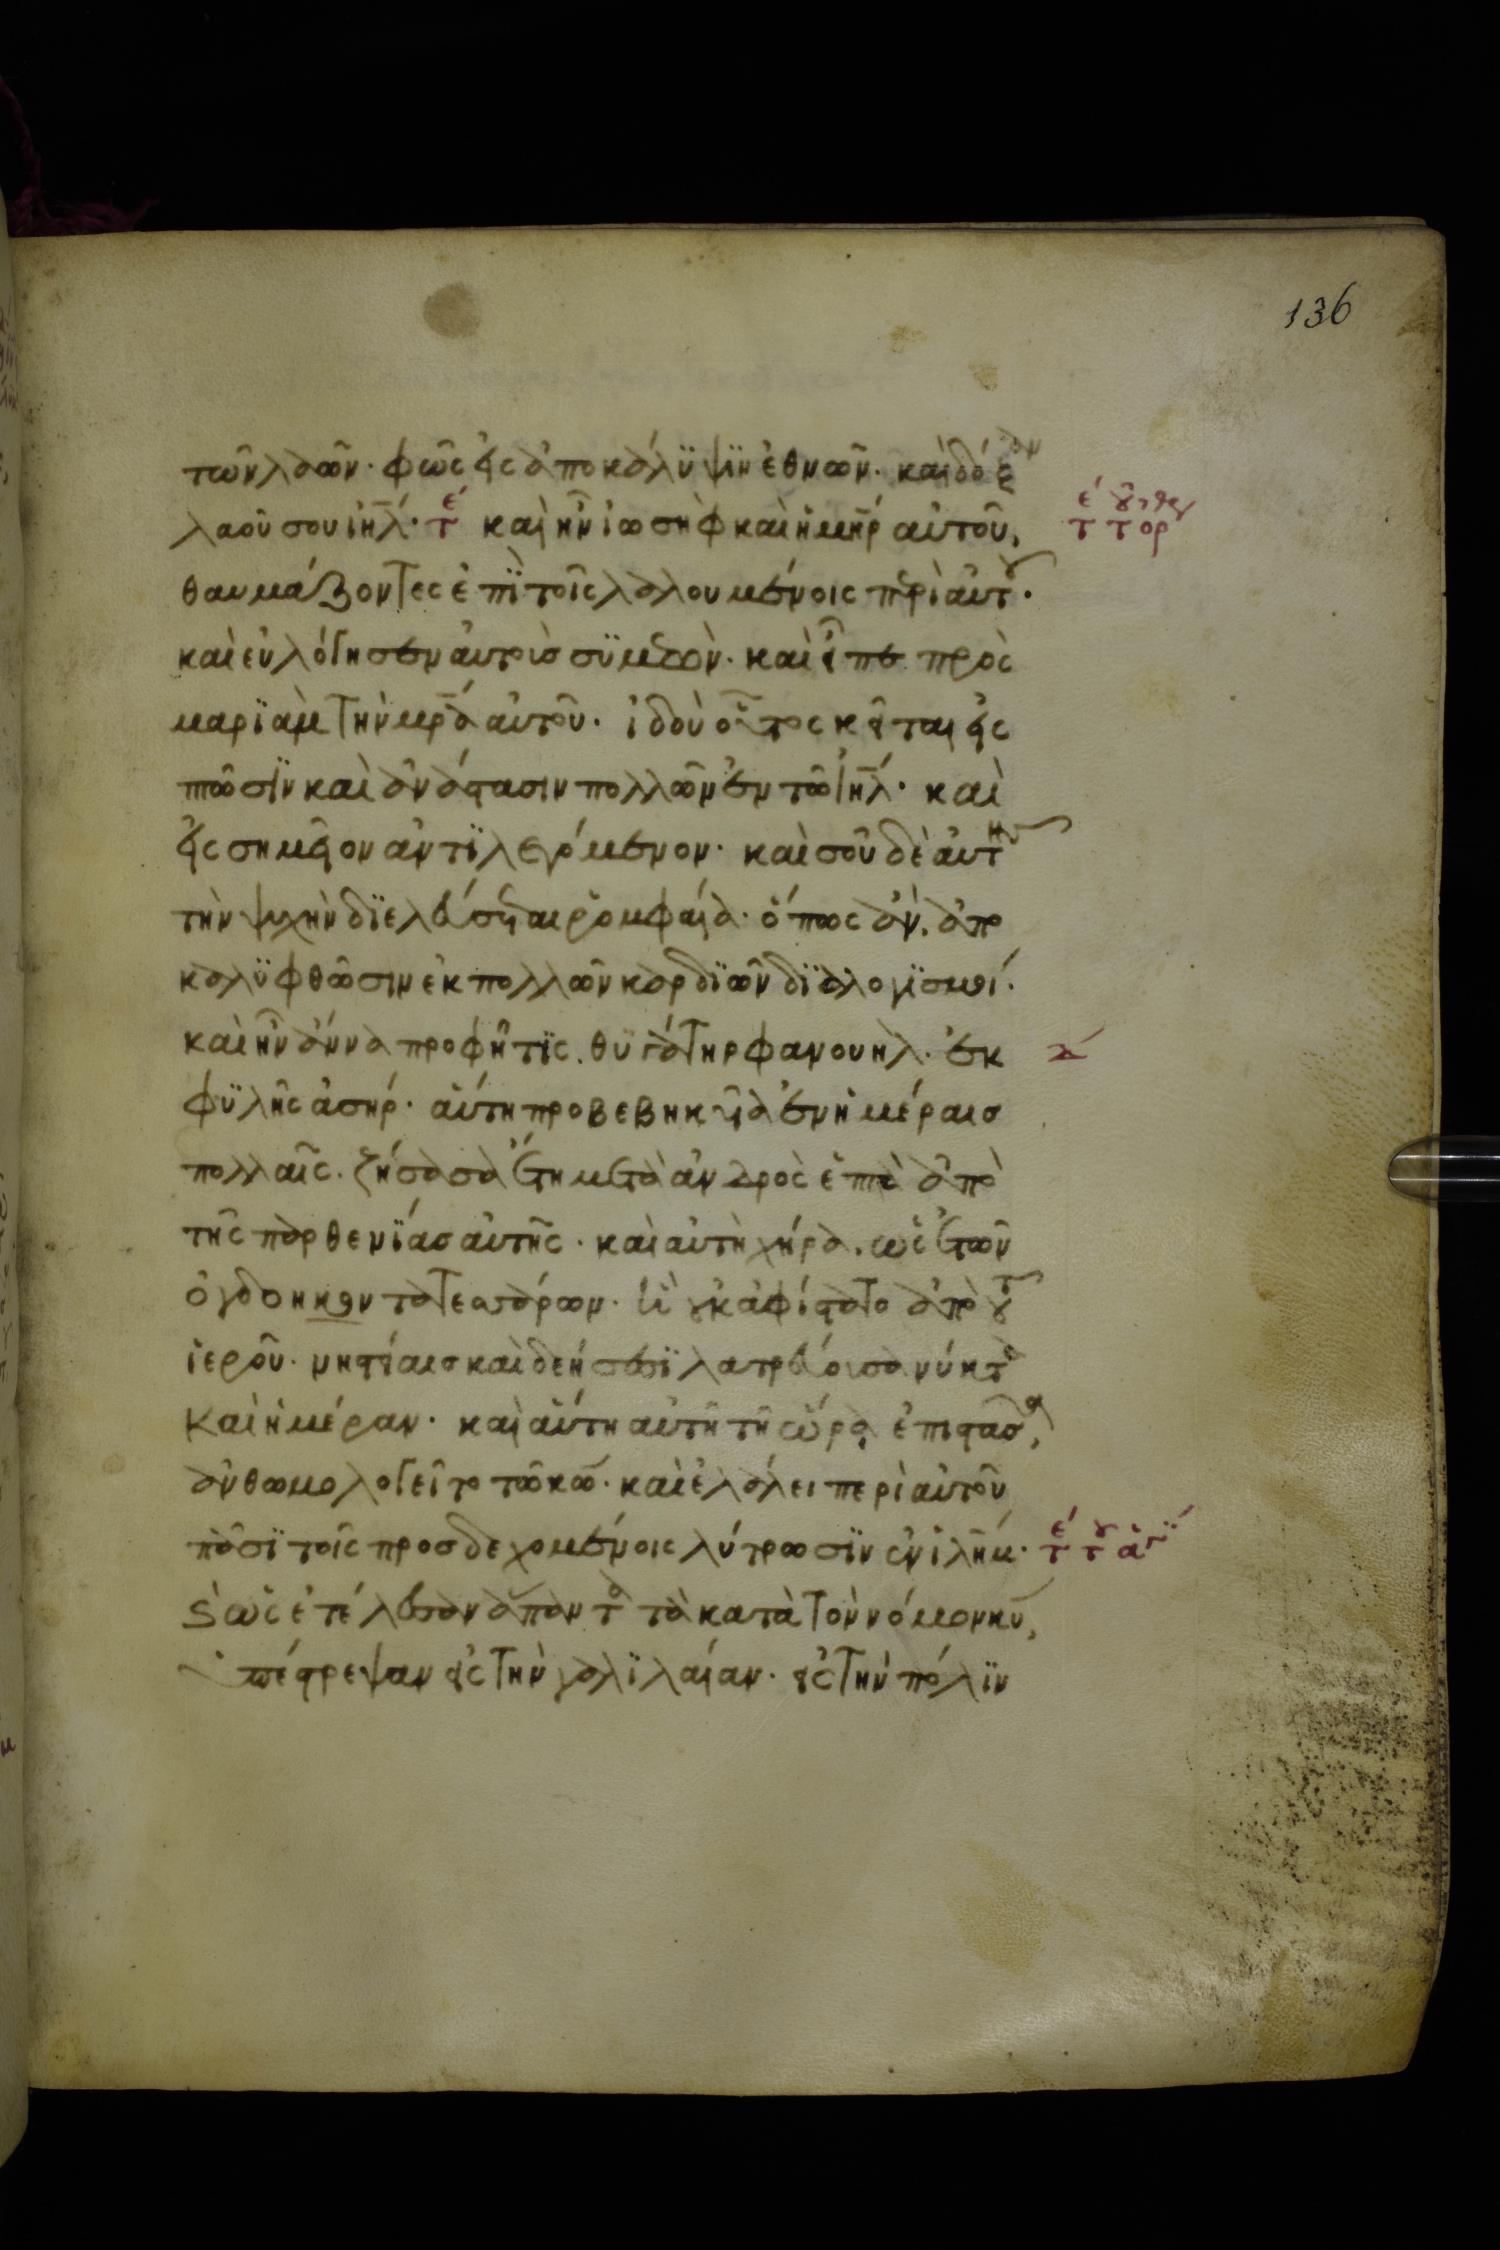 136
τῶν λαῶν· φῶς εἰς ἀποκάλϋψϊν ἐθνῶν· καὶ δόξαν
λαοῦ σου ἰη̅λ· τε καὶ ἦν ἰωσὴφ καὶ ἡ μη̅ρ αὐτοῦ,
θαυμάζοντες ἐπϊ τοῖς λαλουμένοις περὶ αὐτοῦ·
καὶ εὐλόγησεν αὐτοὺσ σϋμεὼν· καὶ εἶπε πρὸς
μαρϊὰμ τὴν μρ̅α αὐτοῦ· ἰδοὺ οὗτος κεῖται εἰς
πτῶσϊν καὶ ἀνάστασιν πολλῶν ἐν τῶ ἰη̅λ· καὶ
εἰς σημεῖον ἀντϊλεγόμενον· καὶ σοῦ δὲ αὐτῆς
τὴν ψυχὴν δϊελεύσεται ῥομφαία· ὅπως ἂν, ἀπο
καλϋφθῶσιν ἐκ πολλῶν καρδϊῶν δϊαλογϊσμοί·
καὶ ἦν ἄννα προφῆτϊς, θϋγάτηρ φανουηλ· ἐκ
φϋλῆς ἀσήρ· αὕτη προβεβηκεῖα ἐν ἡμέραισ
πολλαῖς· ζήσασα ἔτη μετὰ ἀνδρὸς ἑπτὰ ἀπὸ
τῆς παρθενϊάσ αὐτῆς· καὶ αὐτὴ χήρα, ὡς ἐτῶν
ὀγδοηκοντατεσσάρων· ἣ οὐκ ἀφίστατο ἀπὸ τοῦ
ἱεροῦ· νηστείαισ καὶ δεήσεσϊ λατρεύουσα νύκτα
καὶ ἡμέραν· καὶ αὕτη αὐτῆ τῆ ὥρα ἐπιστᾶσα,
ἀνθωμολογεῖτο τῶ κω̅· καὶ ἐλάλει περὶ αὐτοῦ
πᾶσϊ τοῖς προσδεχομένοις λύτρωσϊν ἐν ἱλη̅μ·
ϗ ὡς ἐτέλεσαν ἅπαντα τὰ κατὰ τὸν νόμον κυ̅,
ὑπέστρεψαν εἰς τὴν γαλϊλαίαν· εἰς τὴν πόλϊν